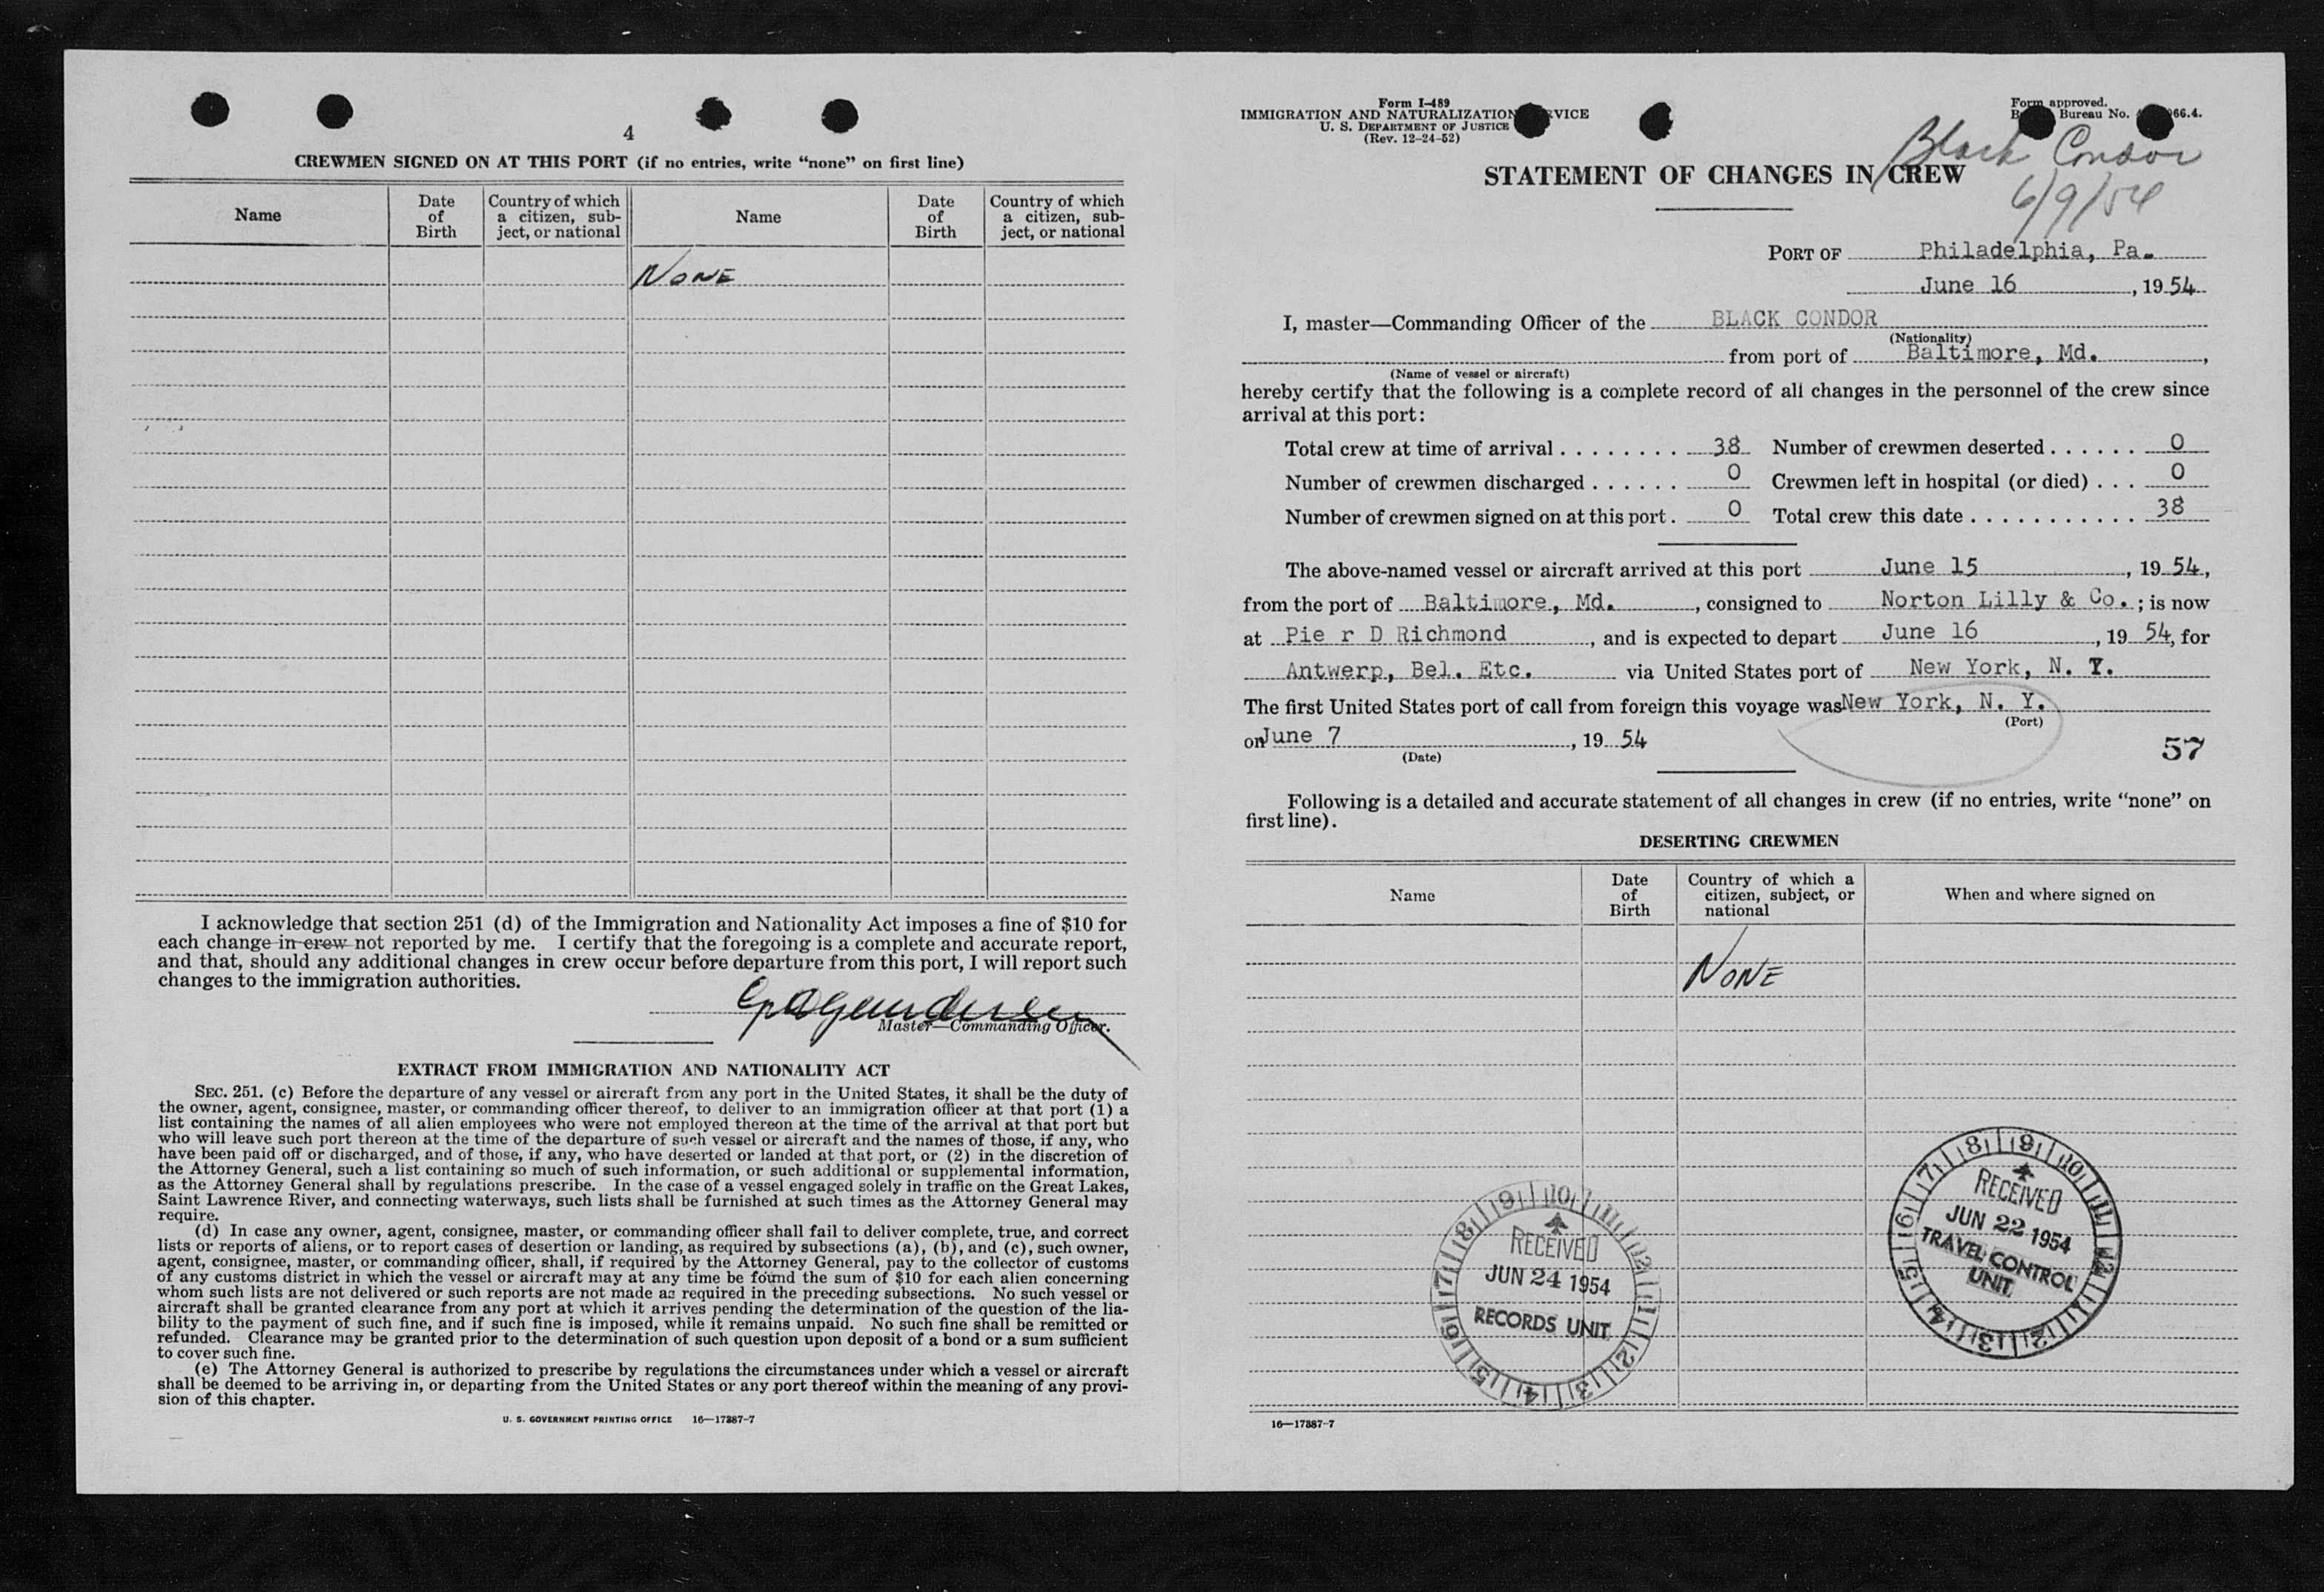 4
CREWMEN SIGNED ON AT THIS PORT (if no entries, write “none” on first line)
Name
Date of Birth
Country of which a citizen, sub-ject, or national
Name
Date of Birth
Country of which a citizen, sub-ject, or national
NONE
I acknowledge that section 251 (d) of the Immigration and Nationality Act imposes a fine of $10 for
each change in crew not reported by me. I certify that the foregoing is a complete and accurate report,
and that, should any additional changes in crew occur before departure from this port, I will report such
changes to the immigration authorities.
Master—Commanding Officer.
EXTRACT FROM IMMIGRATION AND NATIONALITY ACT
SEC. 251. (c) Before the departure of any vessel or aircraft from any port in the United States, it shall be the duty of
the owner, agent, consignee, master, or commanding officer thereof, to deliver to an immigration officer at that port (1) a
list containing the names of all alien employees who were not employed thereon at the time of the arrival at that port but
who will leave such port thereon at the time of the departure of such vessel or aircraft and the names of those, if any, who
have been paid off or discharged, and of those, if any, who have deserted or landed at that port, or (2) in the discretion of
the Attorney General, such a list containing so much of such information, or such additional or supplemental information,
as the Attorney General shall by regulations prescribe. In the case of a vessel engaged solely in traffic on the Great Lakes,
Saint Lawrence River, and connecting waterways, such lists shall be furnished at such times as the Attorney General may
require.
(d) In case any owner, agent, consignee, master, or commanding officer shall fail to deliver complete, true, and correct
lists or reports of aliens, or to report cases of desertion or landing, as required by subsections (a), (b), and (c), such owner,
agent, consignee, master, or commanding officer, shall, if required by the Attorney General, pay to the collector of customs
of any customs district in which the vessel or aircraft may at any time be found the sum of $10 for each alien concerning
whom such lists are not delivered or such reports are not made as required in the preceding subsections. No such vessel or
aircraft shall be granted clearance from any port at which it arrives pending the determination of the question of the lia-
bility to the payment of such fine, and if such fine is imposed, while it remains unpaid. No such fine shall be remitted or
refunded. Clearance may be granted prior to the determination of such question upon deposit of a bond or a sum sufficient
to cover such fine.
(e) The Attorney General is authorized to prescribe by regulations the circumstances under which a vessel or aircraft
shall be deemed to be arriving in, or departing from the United States or any port thereof within the meaning of any provi-
sion of this chapter.
U. S. GOVERNMENT PRINTING OFFICE 16—17387-7
Form I-489
IMMIGRATION AND NATURALIZATION VICE
U. S. DEPARTMENT OF JUSTICE
(Rev. 12-24-52)
Form approved.
Bureau No. 66.4.
Black Condor
6/9/54
STATEMENT OF CHANGES IN CREW
PORT OF Philadelphia, Pa.
June 16, 1954
I, master—Commanding Officer of the BLACK CONDOR
(Nationality)
from port of Baltimore, Md.,
(Name of vessel or aircraft)
hereby certify that the following is a complete record of all changes in the personnel of the crew since
arrival at this port:
Total crew at time of arrival . . . . . . . . 38 Number of crewmen deserted . . . . . . 0
Number of crewmen discharged . . . . . . 0 Crewmen left in hospital (or died) . . . 0
Number of crewmen signed on at this port. 0 Total crew this date . . . . . . . . . . . 38
The above-named vessel or aircraft arrived at this port June 15, 1954,
from the port of Baltimore, Md., consigned to Norton Lilly & Co.; is now
at Pie r D Richmond, and is expected to depart June 16, 19 54, for
Antwerp, Bel. Etc. via United States port of New York, N. Y.
The first United States port of call from foreign this voyage was New York, N. Y.
(Port)
on June 7, 19 54
(Date)
57
Following is a detailed and accurate statement of all changes in crew (if no entries, write “none” on
first line).
DESERTING CREWMEN
Name
Date of Birth
Country of which a citizen, subject, or national
When and where signed on
NONE
RECEIVED
JUN 24 1954
RECORDS UNIT
RECEIVED
JUN 22 1954
TRAVEL CONTROL
UNIT
16—17387-7